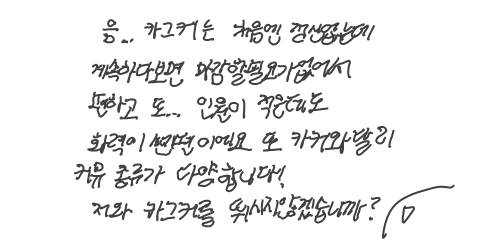 음.. 카그커는 처음엔 정신없는데
계속하다보면 마감할필요가없어서
편하고 또.. 인원이 적은데도
화력이 쩐답니이에요 또 카커와달리
커뮤 종류가 다양합니다!
저와 카그커를 뛰시지않겠습니까?